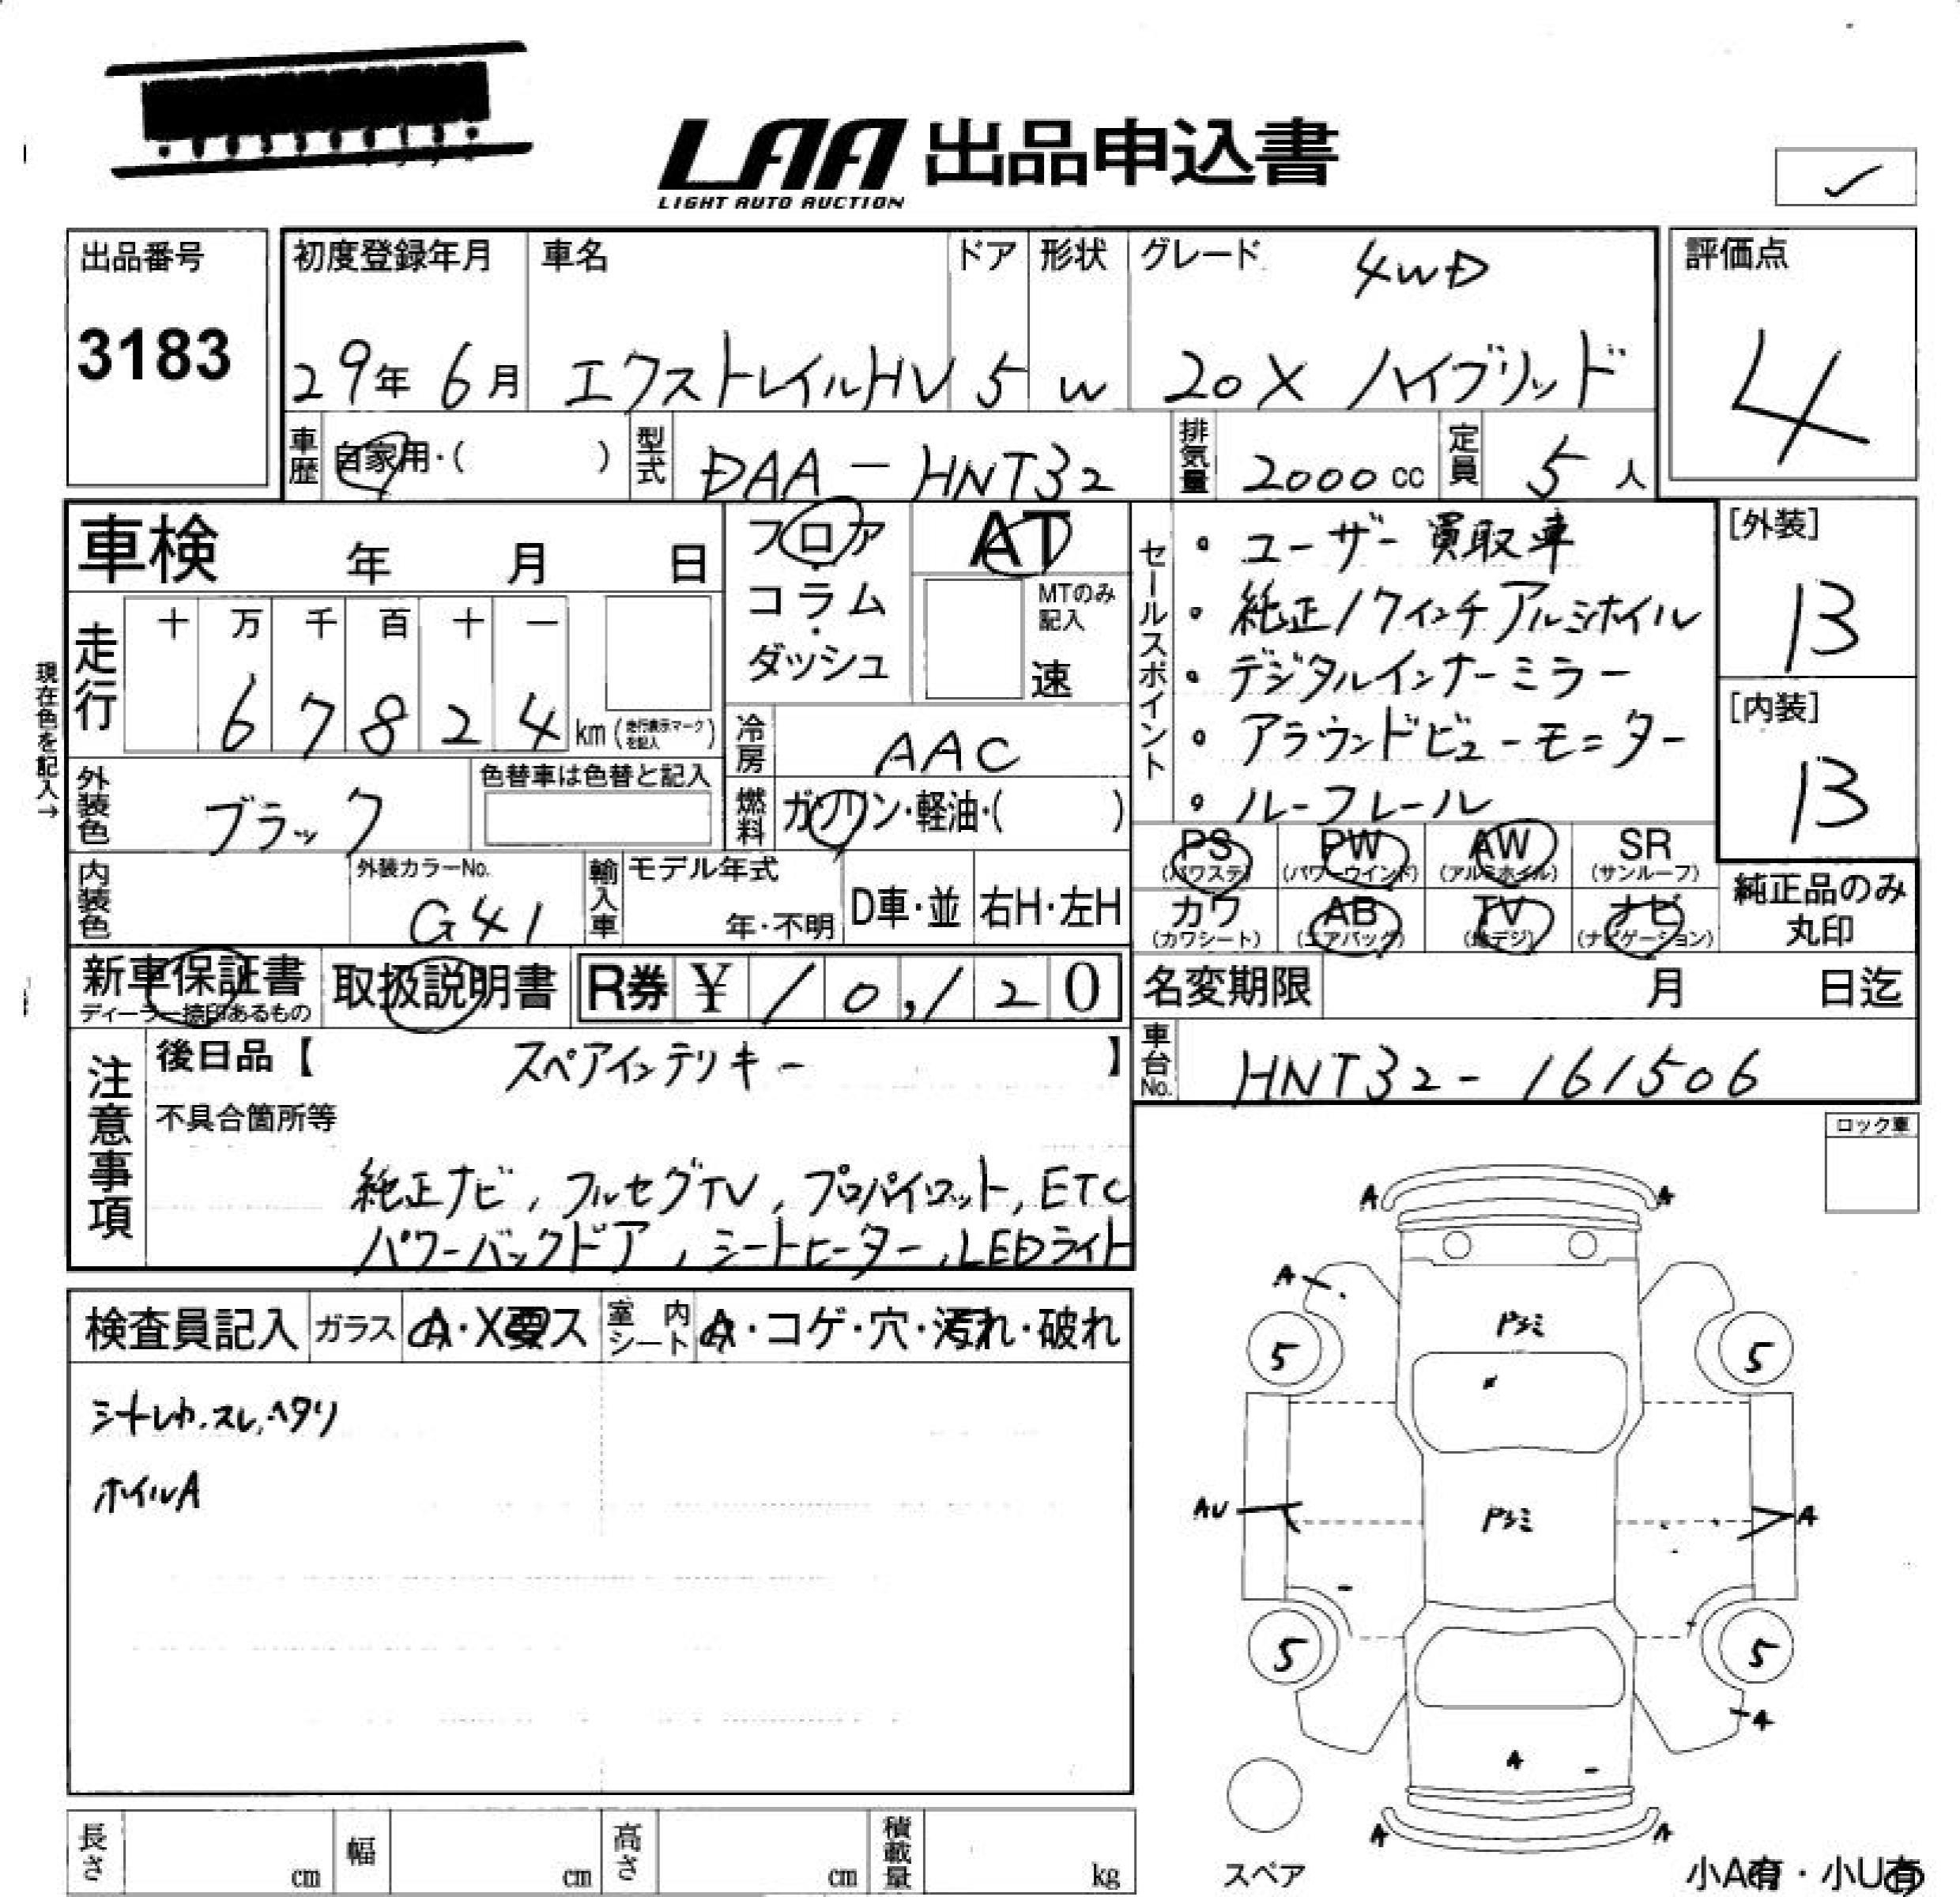 LAA 出品申込書
LIGHT AUTO AUCTION
出品番号
3183
初度登録年月
29年 6月
車名
エクストレイルHV
ドア
5
形状
W
グレード
4WD
20X ハイブリッド
評価点
4
車歴
自家用・( )
型式
DAA-HNT32
排気量
2000 cc
定員
5 人
車検 年 月 日
フロア
・
コラム
・
ダッシュ
AT
MTのみ
記入
速
セールスポイント
・ユーザー買取車
・純正17インチアルミホイル
・デジタルインナーミラー
・アラウンドビューモニター
・ルーフレール
[外装]
B
[内装]
B
現在色を記入→
走行
十 万 千 百 十 一
6 7 8 2 4 km (走行表示マークを記入)
冷房
AAC
燃料
ガソリン・軽油・( )
外装色
ブラック
色替車は色替と記入
内装色
外装カラーNo.
G41
輸入車
モデル年式
年・不明
D車・並
右H・左H
PS (パワステ)
PW (パワーウインド)
AW (アルミホイル)
SR (サンルーフ)
カワ (カワシート)
AB (エアバッグ)
TV (地デジ)
ナビ (ナビゲーション)
純正品のみ
丸印
新車保証書
ディーラー捺印あるもの
取扱説明書
R券 ¥ 10,120
名変期限 月 日迄
車台No.
HNT32-161506
注意事項
後日品【 スペアインテリキー 】
不具合箇所等
純正ナビ, フルセグTV, プロパイロット, ETC
パワーバックドア, シートヒーター, LEDライト
ロック車
検査員記入
ガラス
A・X要ス
室内シート
A・コゲ・穴・汚れ・破れ
シートレカ.スレ.ヘタリ
ホイルA
A A
A
Pシミ
5 5
AU
Pシミ
A
5 5
A
A
A A
スペア
小A有・小U有
長さ cm
幅 cm
高さ cm
積載量 kg